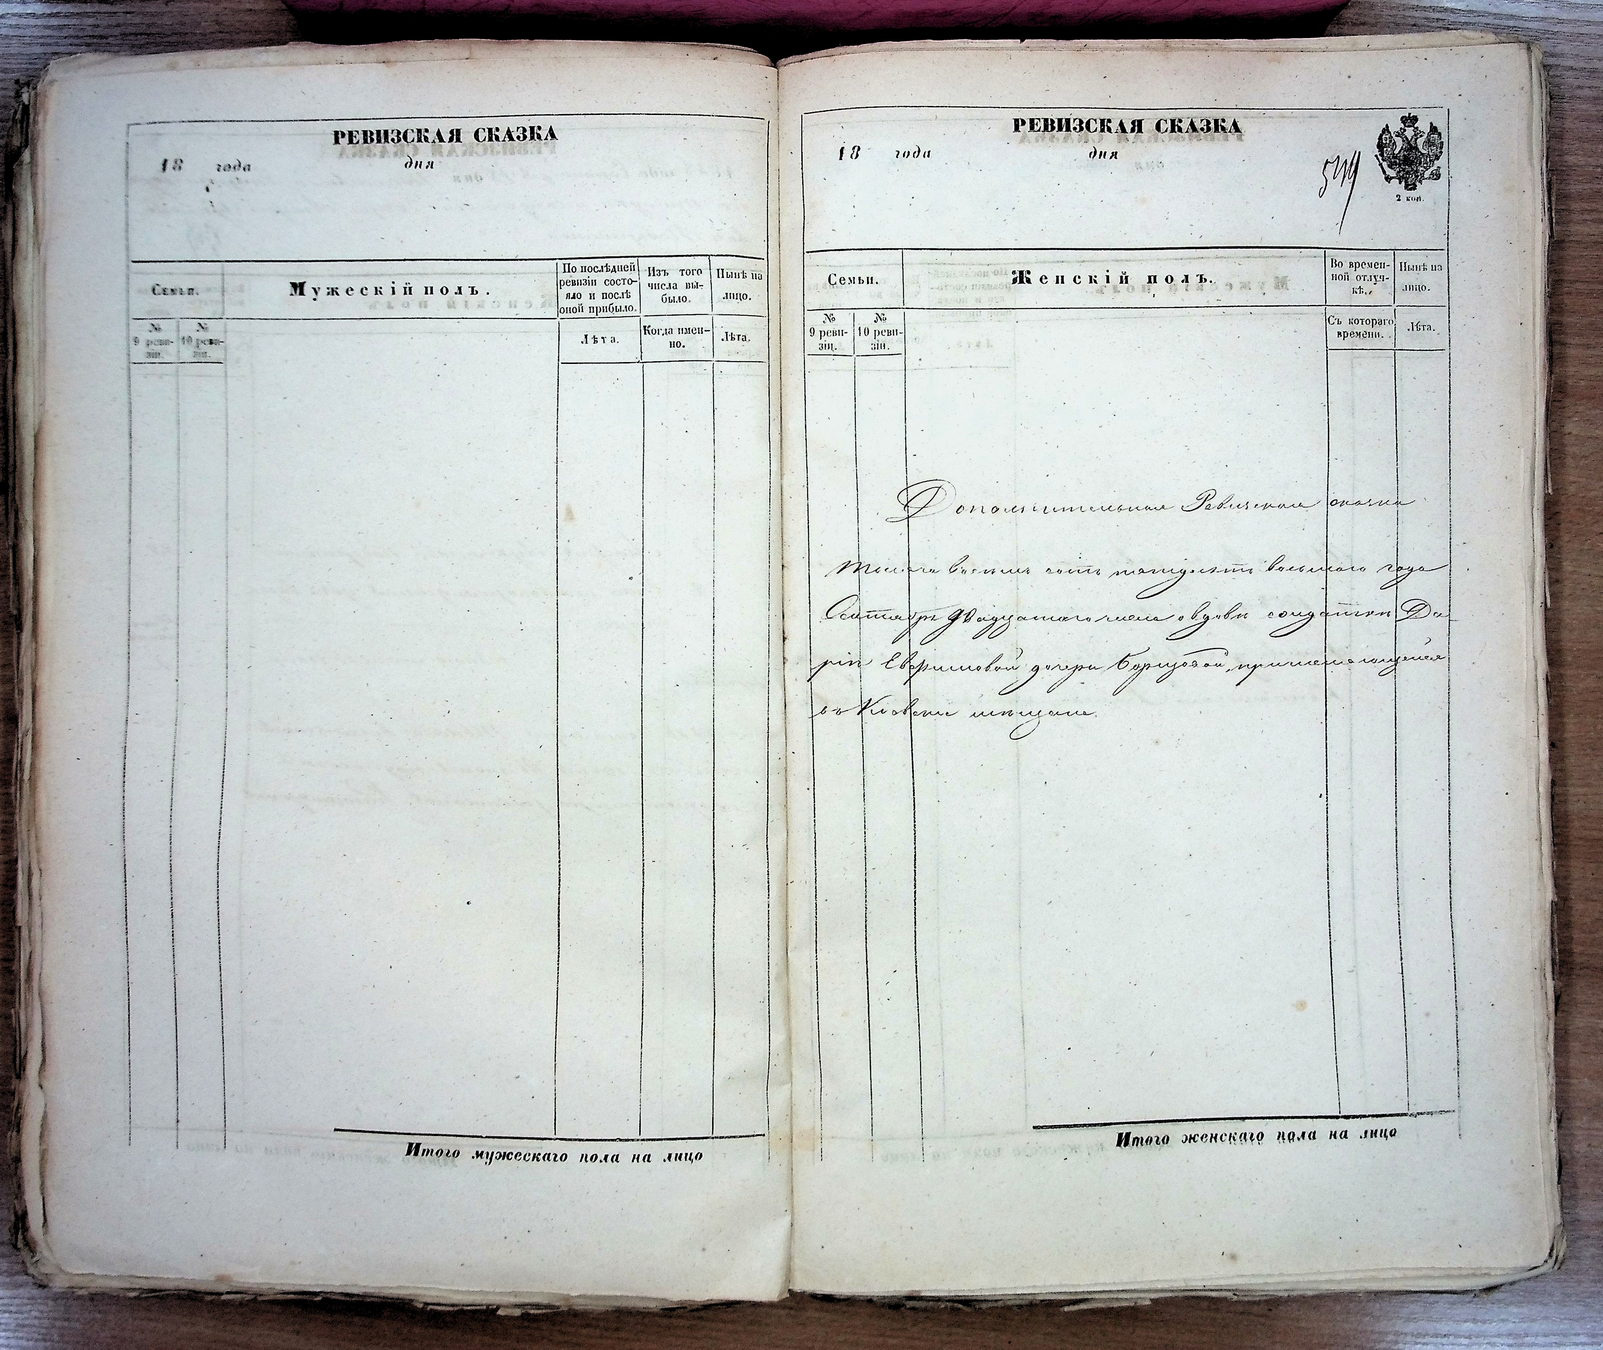 РЕВИЗСКАЯ СКАЗКА
18 года дня
Семьи.
Мужескій полъ.
По послѣдней ревизіи состояло и послѣ оной прибыло.
Изъ того числа выбыло.
Нынѣ на лицо.
№ 9 ревизіи.
№ 10 ревизіи.
Лѣта.
Когда именно.
Лѣта.
Итого мужескаго пола на лицо
РЕВИЗСКАЯ СКАЗКА
18 года дня
2 коп.
Семьи.
Женскій полъ.
Во временной отлучкѣ.
Нынѣ на лицо.
№ 9 ревизіи.
№ 10 ревизіи.
Съ котораго времени.
Лѣта.
Дополнительная Ревизская сказка
тысяча восемь сотъ пятдесятъ восьмаго года
двадцатаго числа о вдовѣ солдаткѣ Да-
ріи Ефимовой дочери причисляющейся
въ Кіевскіе мѣщане.
Итого женскаго пола на лицо